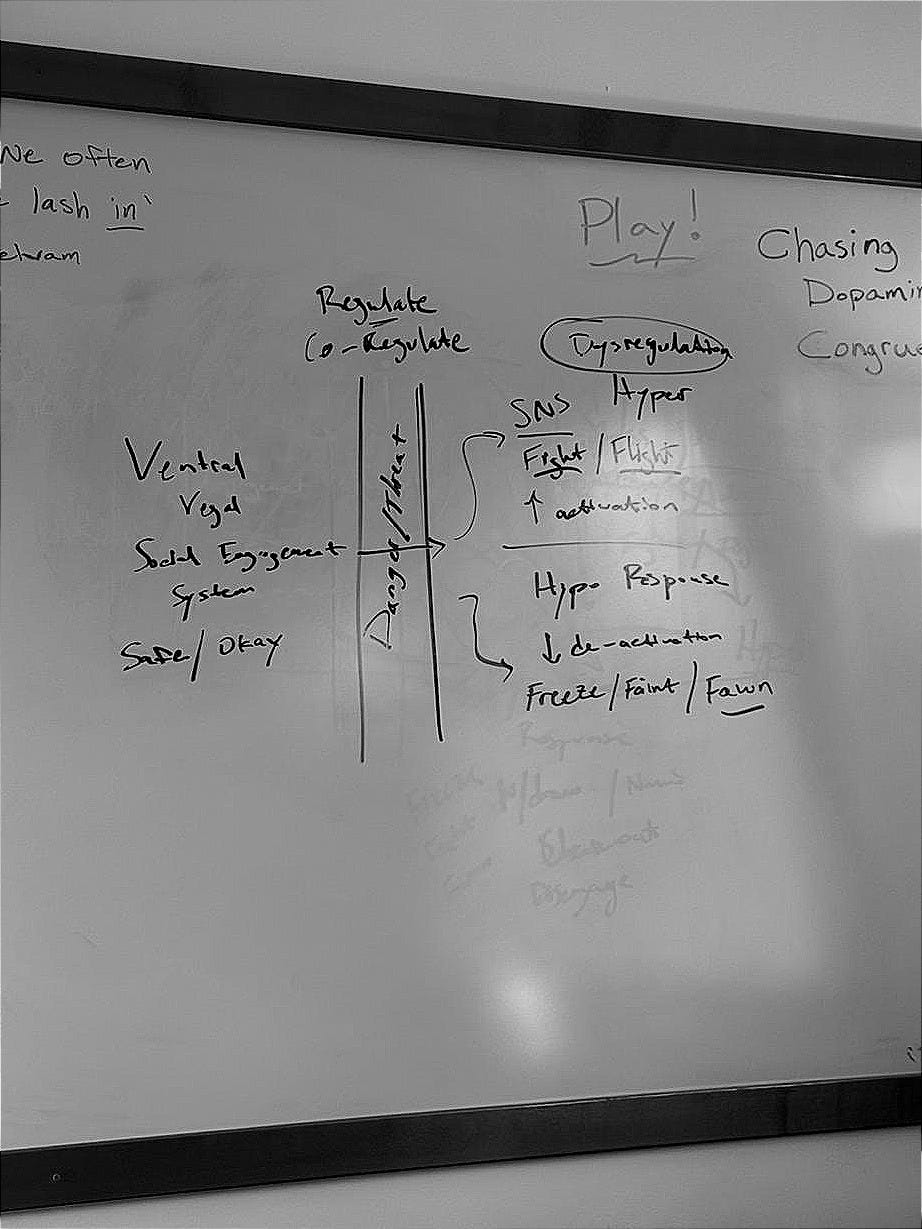 We often
lash in
Play!
Chasing
Dopamin
Congrue
Regulate
Co-Regulate
Dysregulation
Hyper
SNS
Fight / Flight
↑ activation
Danger/Threat
Ventral
Vagal
Social Engagement
System
Safe/Okay
Hypo Response
↓ de-activation
Freeze/Faint/Fawn
Response
Disengage